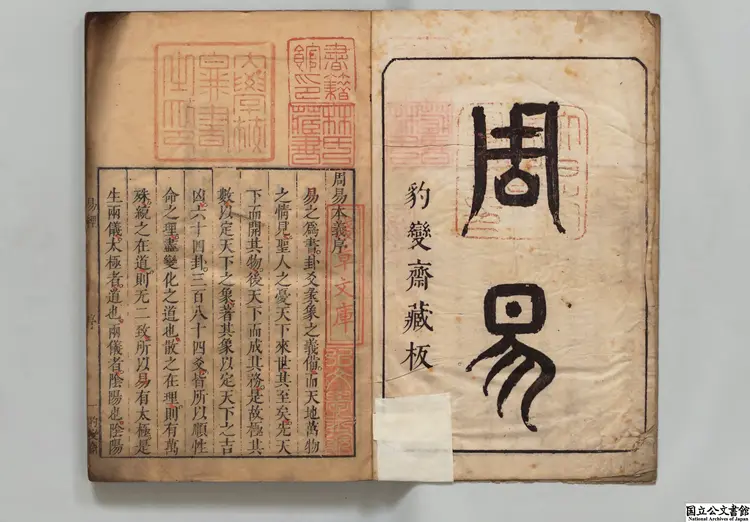 周易
豹變齋藏板
周易本義序
易之為書卦爻彖象之義備而天地萬物
之情見聖人之憂天下來世其至矣先天
下而開其物後天下而成其務是故極其
數以定天下之象著其象以定天下之吉
凶六十四卦三百八十四爻皆所以順性
命之理盡變化之道也散之在理則有萬
殊統之在道則无二致所以易有太極是
生兩儀太極者道也兩儀者陰陽也陰陽
易經
序
書籍館印
林氏藏書
文庫
国立公文書館
National Archives of Japan